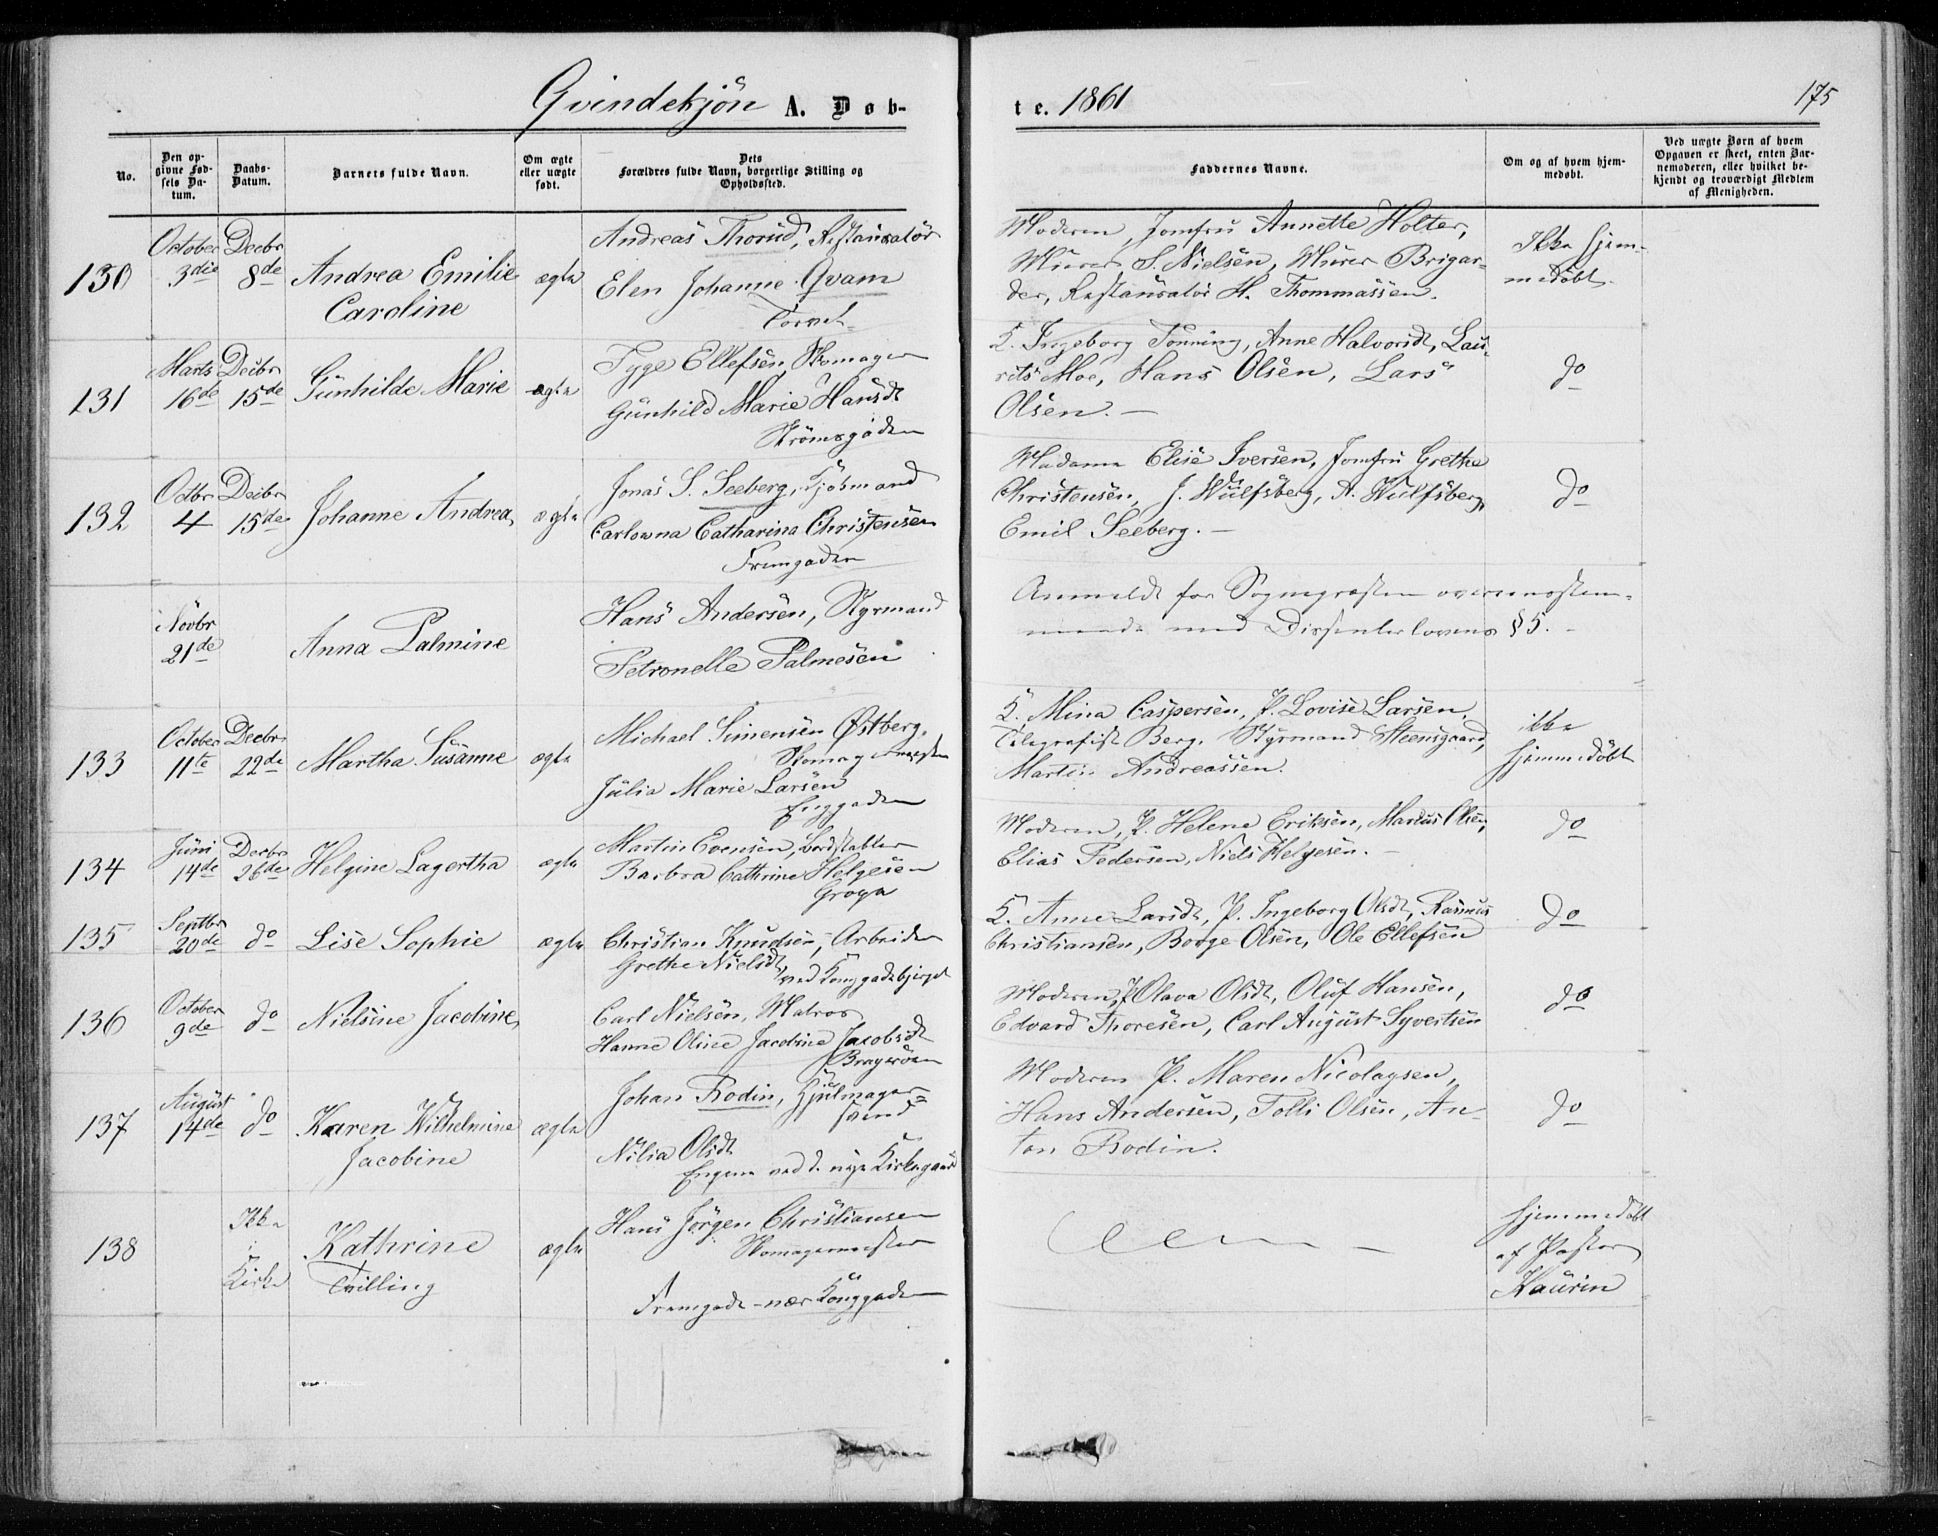 Qvindekjön A. Døb-
te. 1861
175
No.
Den op-
givne Fød-
sels Da-
tum.
Daabs-
Datum.
Barnets fulde Navn.
Om ægte
eller uægte
født.
Dets
Forældres fulde Navn, borgerlige Stilling og
Opholdssted.
Faddernes Navne.
Om og af hvem hjem-
medøbt.
Ved uægte Børn af hvem
Opgaven er skeet, enten Bar-
nemoderen, eller hvilket be-
kjendt og troværdigt Medlem
af Menigheden.
130
October
3die
Decbr
8de
Andrea Emilie
Caroline
ægte
Andreas Thorud, Restauratör
Elen Johanne Qvam
Torvet
Moderen, Jomfru Annette Holter,
Murer S. Nielsen, Murer Brigar-
der, Restauratör H. Thommassen.
Ikke hjem-
medöbt.
131
Marts
16de
Decbr
15de
Gunhilde Marie
ægte
Tyge Ellefsen, Skomager
Gunhild Marie Hansdt
Strömsgaden
K. Ingeborg Tonning, Anne Halvorsdt, Lau-
rits Moe, Hans Olsen, Lars
Olsen.
do
132
Octbr
4
Decbr
15de
Johanne Andrea
ægte
Jonas S. Seeberg, Kjöbmand
Carlowna Catharina Christensen
Fremgaden
Madame Elise Iversen, Jomfru Grethe
Christensen, J. Wulfsberg, A. Wulfsberg,
Emil Seeberg.
do
Novbr
21de
Anna Palmine
Hans Andersen, Styrmand
Petronelle Palmesen
Anmeldt for Sognepræsten overensstem-
mende med Dissenterlovens § 5.
133
October
11te
Decbr
22de
Martha Susanne
ægte
Michael Simensen Østberg,
Skomagermester
Julia Marie Larsen
Enggaden
K. Mina Caspersen, P. Lovise Larsen,
Telegrafist Berg, Styrmand Steensgaard,
Martin Andreassen.
ikke
hjemmedöbt
134
Juni
14de
Decbr
26de
Helgine Lagertha
ægte
Martin Evensen, Bordstabler
Barbra Cathrine Helgesen
Moderen, P. Helene Eriksen, Marius Olsen,
Elias Pedersen, Niels Helgesen.
do
135
Septbr
20de
do
Lise Sophie
ægte
Christian Knudsen, Arbeider
Grethe Nielsdt,
ved Konggadebjerget
K. Anne Larsdt, P. Ingeborg Olsdt, Rasmus
Christiansen, Borge Olsen, Ole Ellefsen
do
136
October
9de
do
Nielsine Jacobine
Carl Nielsen, Matros
Hanne Oline Jacobine Jacobsdt
Bragerøen
Moderen, P. Olava Olsdt, Oluf Hansen,
Edvard Thoresen, Carl August Syvertsen
do
137
August
14de
do
Karen Wilhelmine
Jacobine
ægte
Johan Rodin, Hjulmager-
svend
Nilia Olsdt
Engene ved d. nye Kirkegaard
Moderen P. Maren Nicolaysen,
Hans Andersen, Tolli Olsen, An-
ton Rodin.
do
138
Ikke
i
Kirke
Kathrine
Tvilling
ægte
Hans Jörgen Christiansen
Skomagermester
Fremgade nær Konggaden
hjemmedöbt
af Pastor
Kaurin